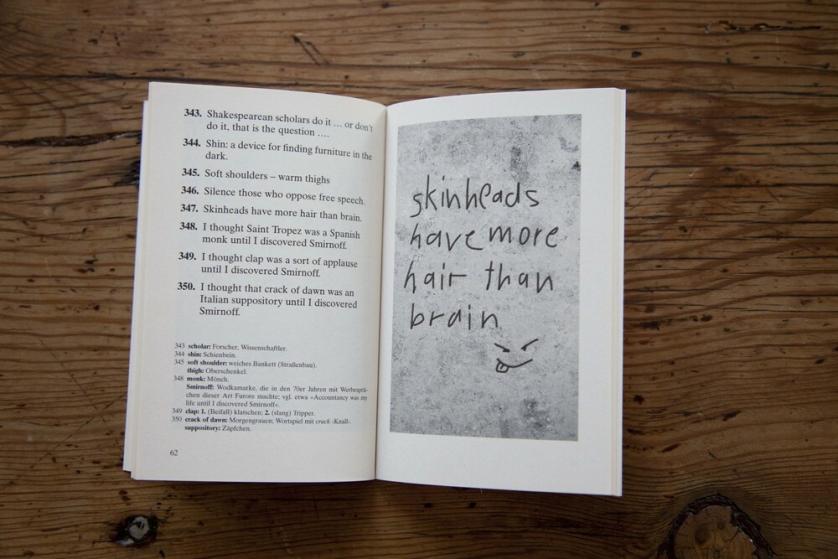 343. Shakespearean scholars do it … or don't
do it, that is the question ….
344. Shin: a device for finding furniture in the
dark.
345. Soft shoulders – warm thighs
346. Silence those who oppose free speech.
347. Skinheads have more hair than brain.
348. I thought Saint Tropez was a Spanish
monk until I discovered Smirnoff.
349. I thought clap was a sort of applause
until I discovered Smirnoff.
350. I thought that crack of dawn was an
Italian suppository until I discovered
Smirnoff.
343 scholar: Forscher, Wissenschaftler.
344 shin: Schienbein.
345 soft shoulder: weiches Bankett (Straßenbau).
thigh: Oberschenkel.
348 monk: Mönch.
Smirnoff: Wodkamarke, die in den 70er Jahren mit Werbesprü-
chen dieser Art Furore machte; vgl. etwa »Accountancy was my
life until I discovered Smirnoff«.
349 clap: 1. (Beifall) klatschen; 2. (slang) Tripper.
350 crack of dawn: Morgengrauen; Wortspiel mit crack ›Knall‹.
suppository: Zäpfchen.
62
skinheads
have more
hair than
brain